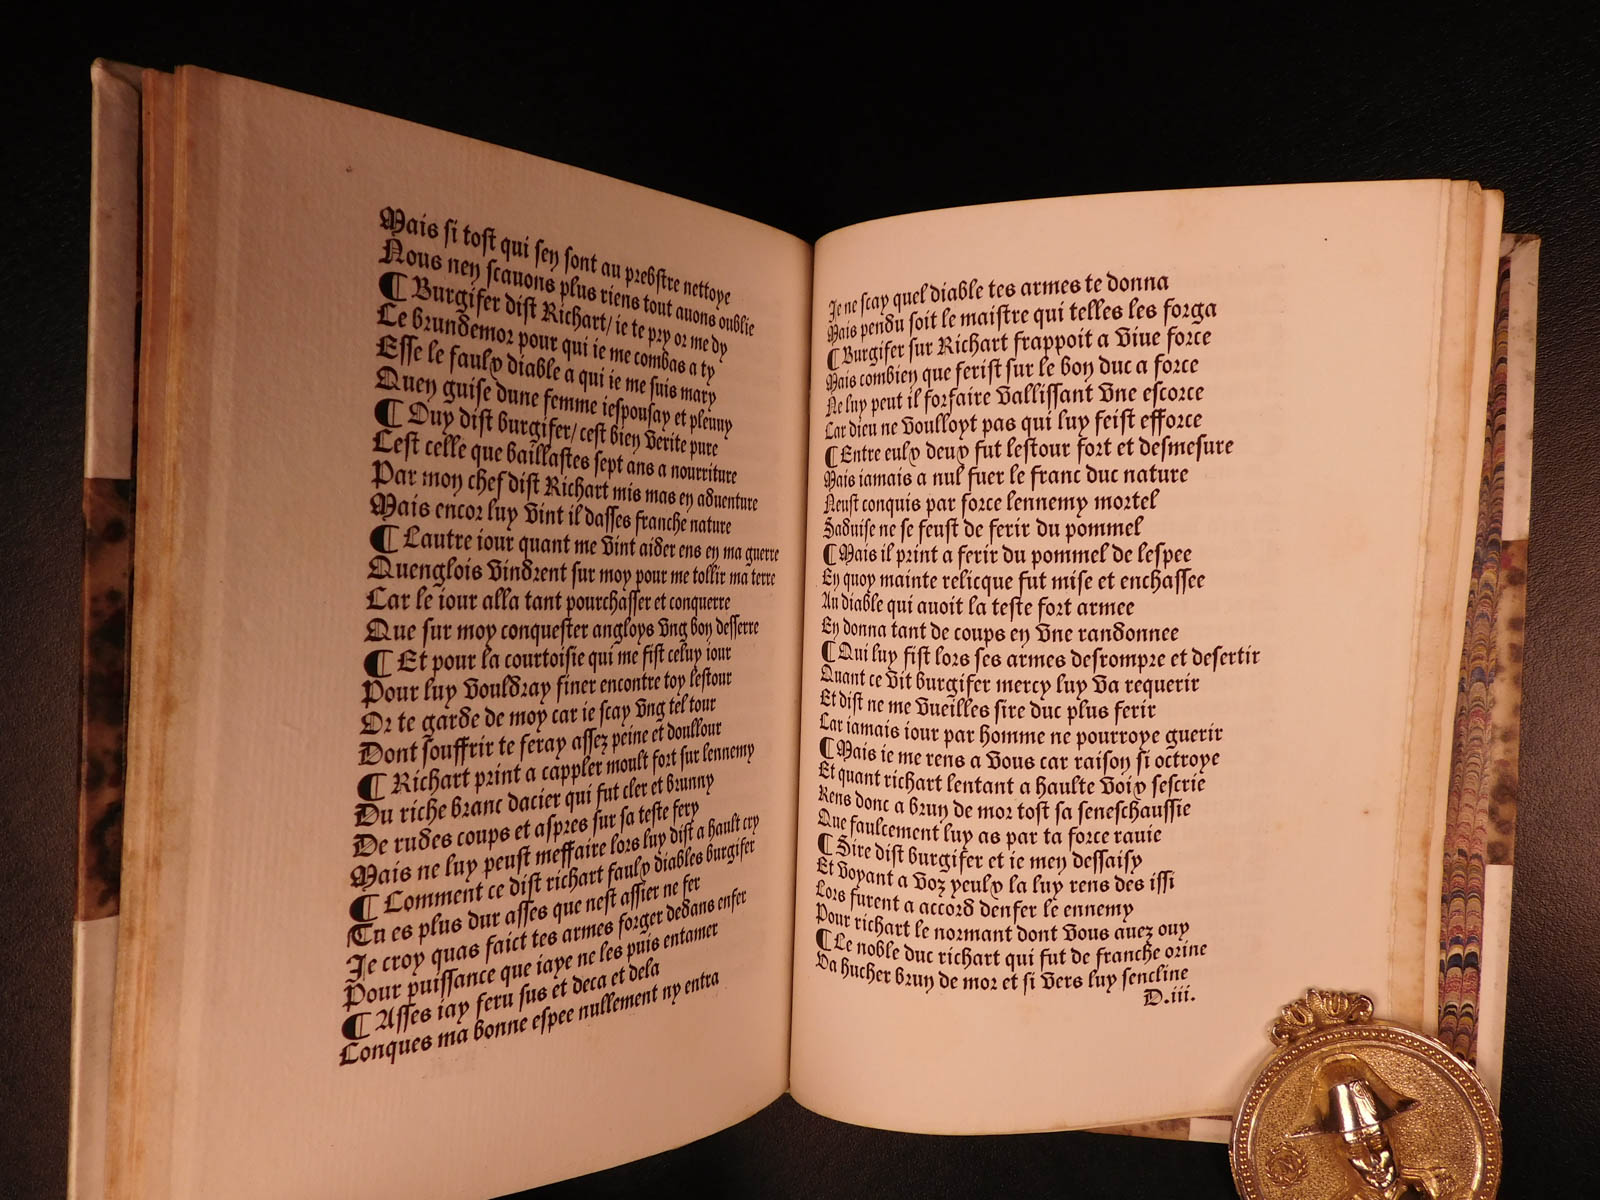 Mais si tost qui sen sont au prebstre nettoye
Nous nen scauons plus riens tout auons oublie
¶ Burgifer dist Richart/ ie te pry or me dy
Le brundemor pour qui ie me combas a ty
Esse le faulx diable a qui ie me suis mary
Quen guise dune femme iespousay et pleuuy
¶ Ouy dist burgifer/ cest bien verite pure
Cest celle que baillastes sept ans a nourriture
Par mon chef dist Richart mis mas en aduenture
Mais encor luy vint il dasses franche nature
¶ Lautre iour quant me vint aider ens en ma guerre
Quenglois vindrent sur moy pour me tollir ma terre
Car le iour alla tant pourchasser et conquerre
Que sur moy conquester angloys vng bon desserre
¶ Et pour la courtoisie qui me fist celuy iour
Pour luy vouldray finer encontre toy lestour
Or te garde de moy car ie scay vng tel tour
Dont souffrir te feray assez peine et doullour
¶ Richart print a cappler moult fort sur lennemy
Du riche branc dacier qui fut cler et brunny
De rudes coups et aspres sur sa teste fery
Mais ne luy peust meffaire lors luy dist a hault cry
¶ Comment ce dist richart faulx diables burgifer
Tu es plus dur asses que nest assier ne fer
Je croy quas faict tes armes forger dedans enfer
Pour puissance que iaye ne les puis entamer
¶ Asses iay feru sus et deca et dela
Conques ma bonne espee nullement ny entra
Je ne scay quel diable tes armes te donna
Mais pendu soit le maistre qui telles les forga
¶ Burgifer sur Richart frappoit a viue force
Mais combien que ferist sur le bon duc a force
Ne luy peut il forfaire vallissant vne escorce
Car dieu ne voulloyt pas qui luy feist efforce
¶ Entre eulx deux fut lestour fort et desmesure
Mais iamais a nul fuer le franc duc nature
Neust conquis par force lennemy mortel
Saduise ne se feust de ferir du pommel
¶ Mais il print a ferir du pommel de lespee
En quoy mainte relicque fut mise et enchassee
Au diable qui auoit la teste fort armee
En donna tant de coups en vne randonnee
¶ Qui luy fist lors ses armes desrompre et desertir
Quant ce vit burgifer mercy luy va requerir
Et dist ne me vueilles sire duc plus ferir
Car iamais iour par homme ne pourroye guerir
¶ Mais ie me rens a vous car raison si octroye
Et quant richart lentant a haulte voix sescrie
Rens donc a brun de mor tost sa seneschaussie
Que faulcement luy as par ta force rauie
¶ Sire dist burgifer et ie men dessaisy
Et voyant a voz yeulx la luy rens des issi
Lors furent a accord denfer le ennemy
Pour richart le normant dont vous auez ouy
¶ Le noble duc richart qui fut de franche orine
Va hucher brun de mor et si vers luy sencline
D.iii.